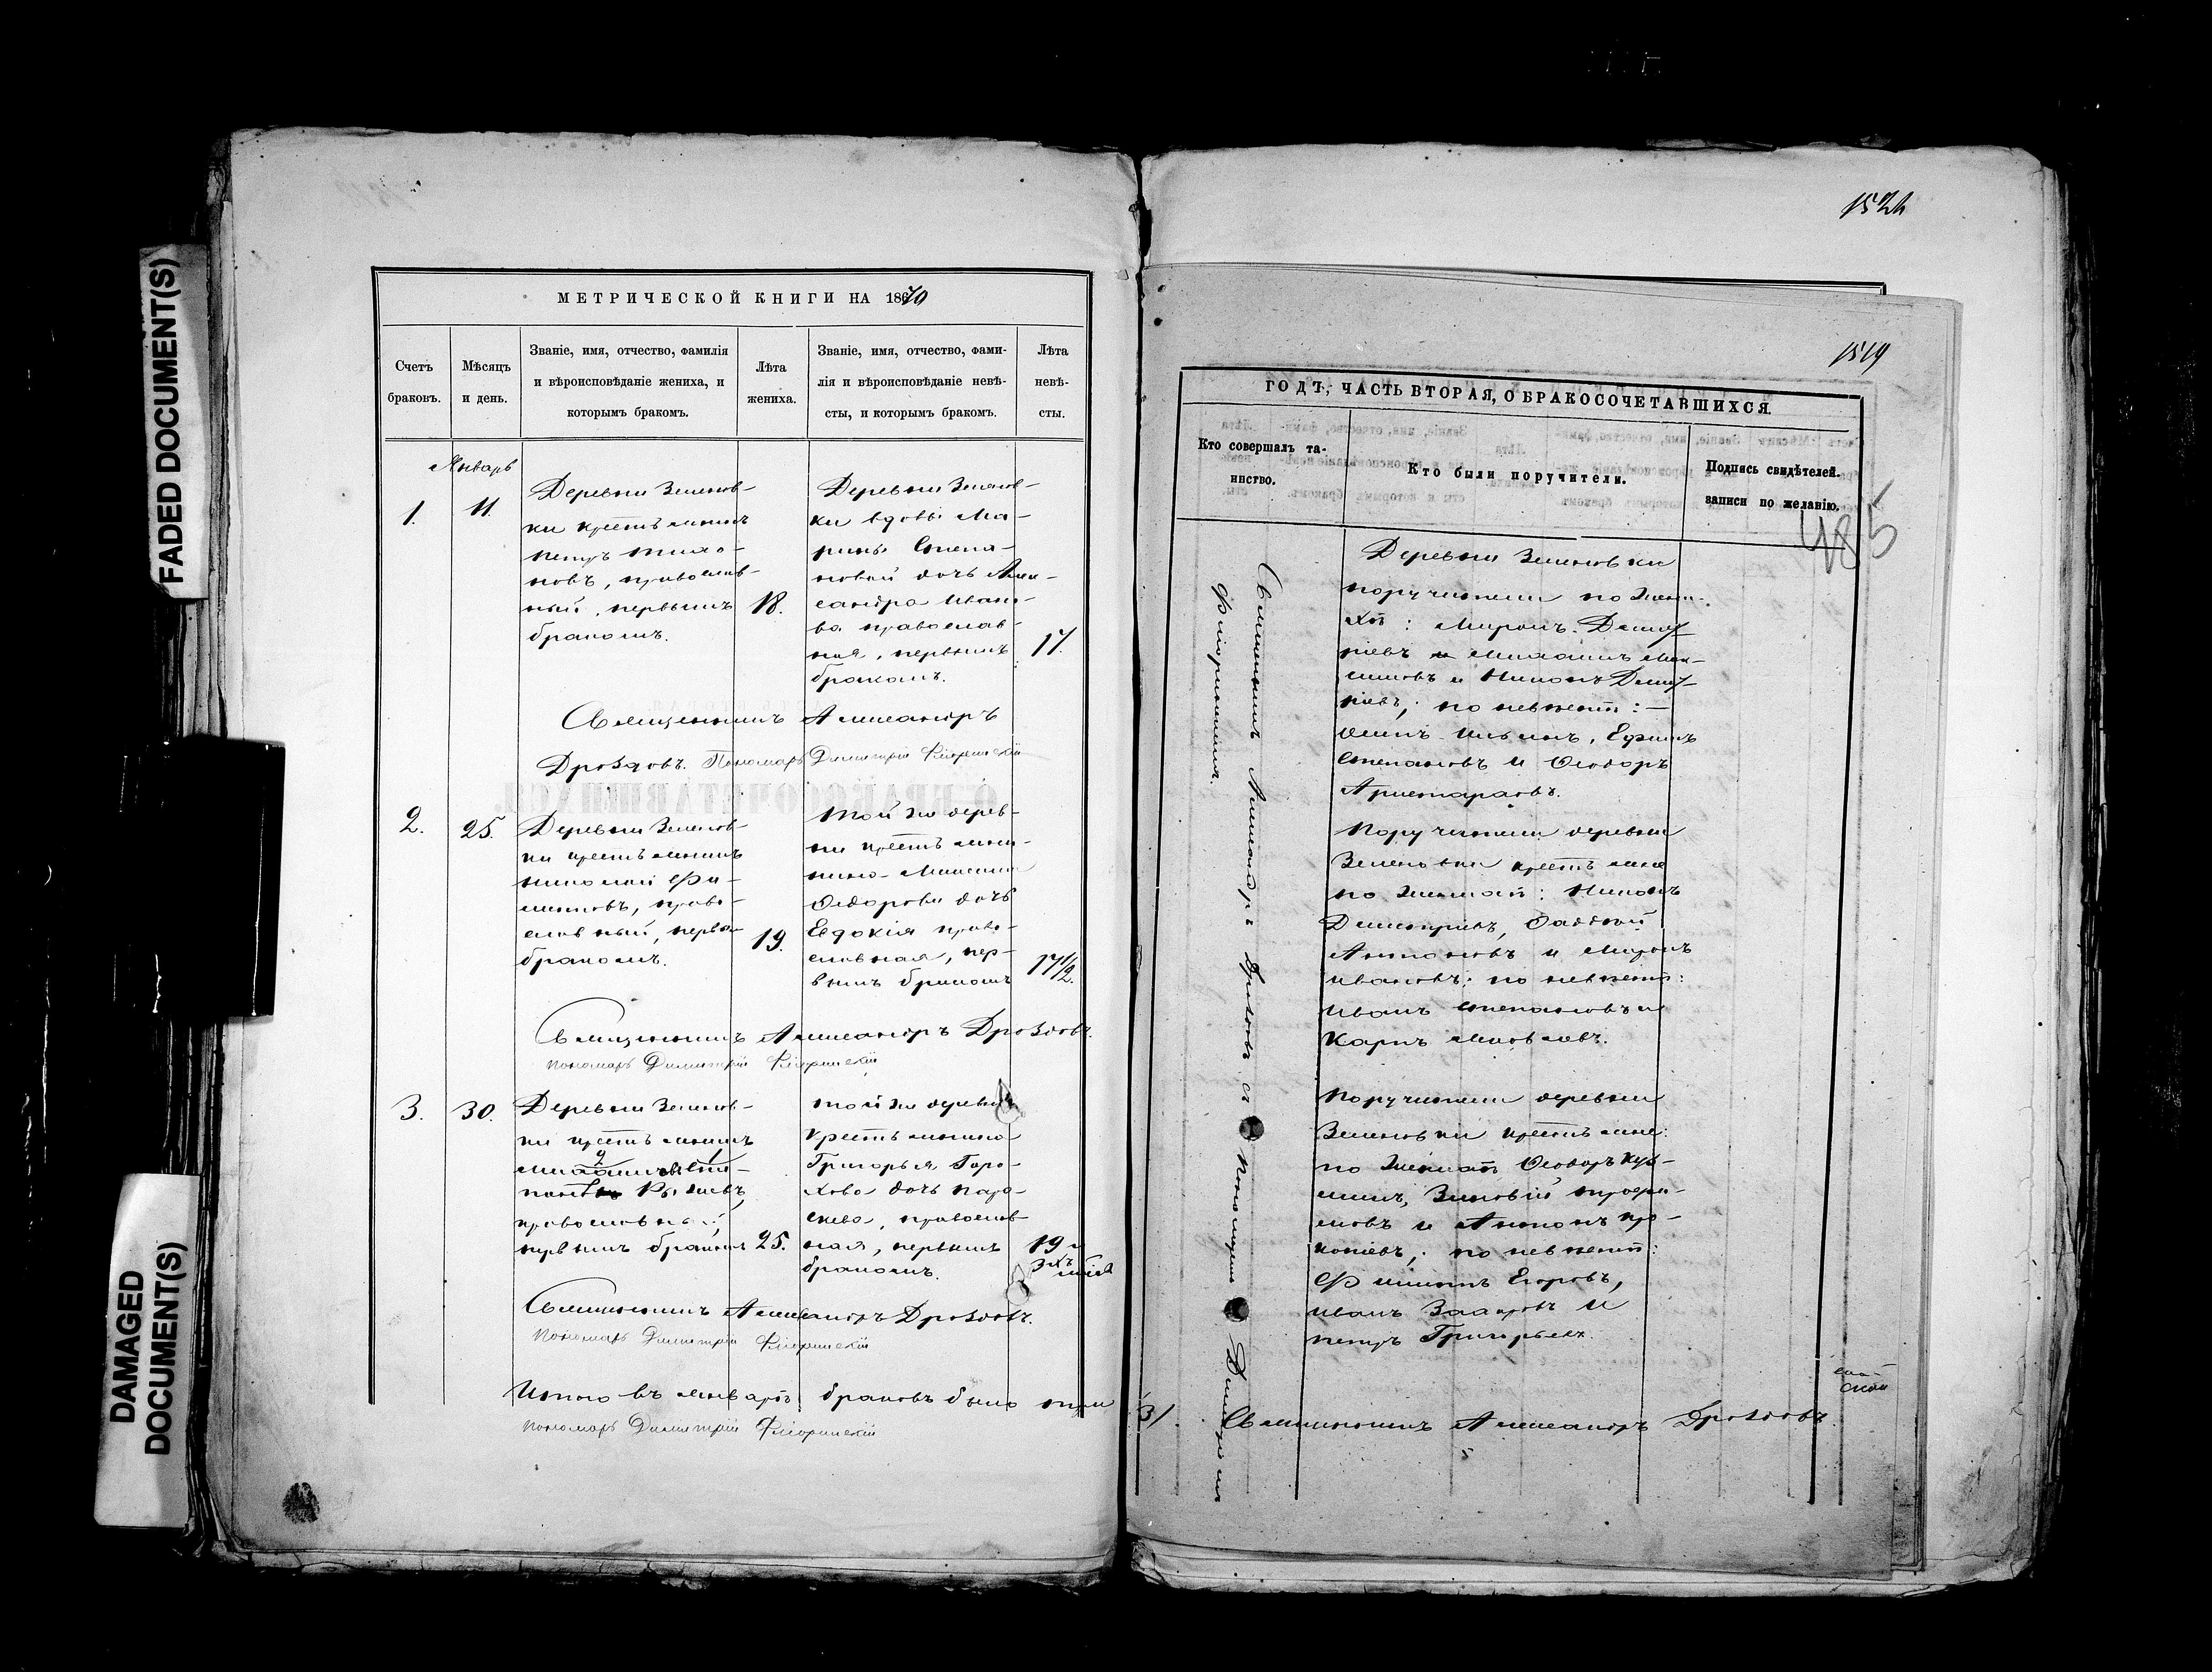 FADED DOCUMENT(S)
DAMAGED
DOCUMENT(S)
МЕТРИЧЕСКОЙ КНИГИ НА 1870
Счетъ
браковъ.
Мѣсяцъ
и день.
Званіе, имя, отчество, фамилія
и вѣроисповѣданіе жениха, и
которымъ бракомъ.
Лѣта
жениха.
Званіе, имя, отчество, фами-
лія и вѣроисповѣданіе невѣ-
сты, и которымъ бракомъ.
Лѣта
невѣ-
сты.
Январь
1.
11.
Деревни Зеленов-
ки крестьянинъ
Петръ
православ-
ный, первымъ
бракомъ.
18.
Деревни Зеленов-
ки вдовы Ма-
рины Степа-
новой дочь Алек-
сандра Ивано-
ва православ-
ная, первымъ
бракомъ.
17.
Священникъ Александръ
Дроздовъ. Пономарь Димитрій Флоринскій
2.
25.
Деревни Зеленов-
ки крестьянинъ
Николай Фи-
липповъ, право-
славный, первымъ
бракомъ.
19.
Той же дерев-
ни крестьяни-
нина Максима
Ѳедорова дочь
Евдокія право-
славная, пер-
вымъ бракомъ
17 1/2.
Священникъ Александръ Дроздовъ.
пономарь Димитрій Флоринскій
3.
30.
Деревни Зеленов-
ки крестьянинъ
православный,
первымъ бракомъ
25.
той же деревни
крестьянина
Григорья Горо-
хова дочь Пара-
скева, православ-
ная, первымъ
бракомъ.
19 и
3хъ
Священникъ Александръ Дроздовъ.
пономарь Димитрій Флоринскій
Итого въ январѣ браковъ было три
пономарь Димитрій Флоринскій
1524
1519
485
ГОДЪ, ЧАСТЬ ВТОРАЯ, О БРАКОСОЧЕТАВШИХСЯ.
Кто совершалъ та-
инство.
Кто были поручители.
Подпись свидѣтелей
записи по желанію.
Священникъ Александръ Дроздовъ съ пономаремъ Димитріемъ
Флоринскимъ.
Деревни Зеленовки
поручители по жени-
хѣ: Миронъ Димит-
ріевъ и
и Никонъ Димит-
ріевъ; по невѣстѣ:
Осипъ Ильинъ, Ефимъ
Степановъ и Ѳеодоръ
Аристарховъ.
Поручители деревни
Зеленовки крестьяне
по женихѣ: Никонъ
Димитріевъ, Ѳаддей
Антоновъ и Миронъ
Ивановъ; по невѣстѣ:
Иванъ Степановъ и
Карпъ Яковлевъ.
Поручители деревни
Зеленовки крестьяне:
по женихѣ Ѳеодоръ Кузь-
минъ, Зиновій Трофи-
мовъ и Антонъ Про-
копіевъ; по невѣстѣ:
Филиппъ Егоровъ,
Иванъ Захаровъ и
Петръ Григорьевъ.
3/. Священникъ Александръ Дроздовъ.